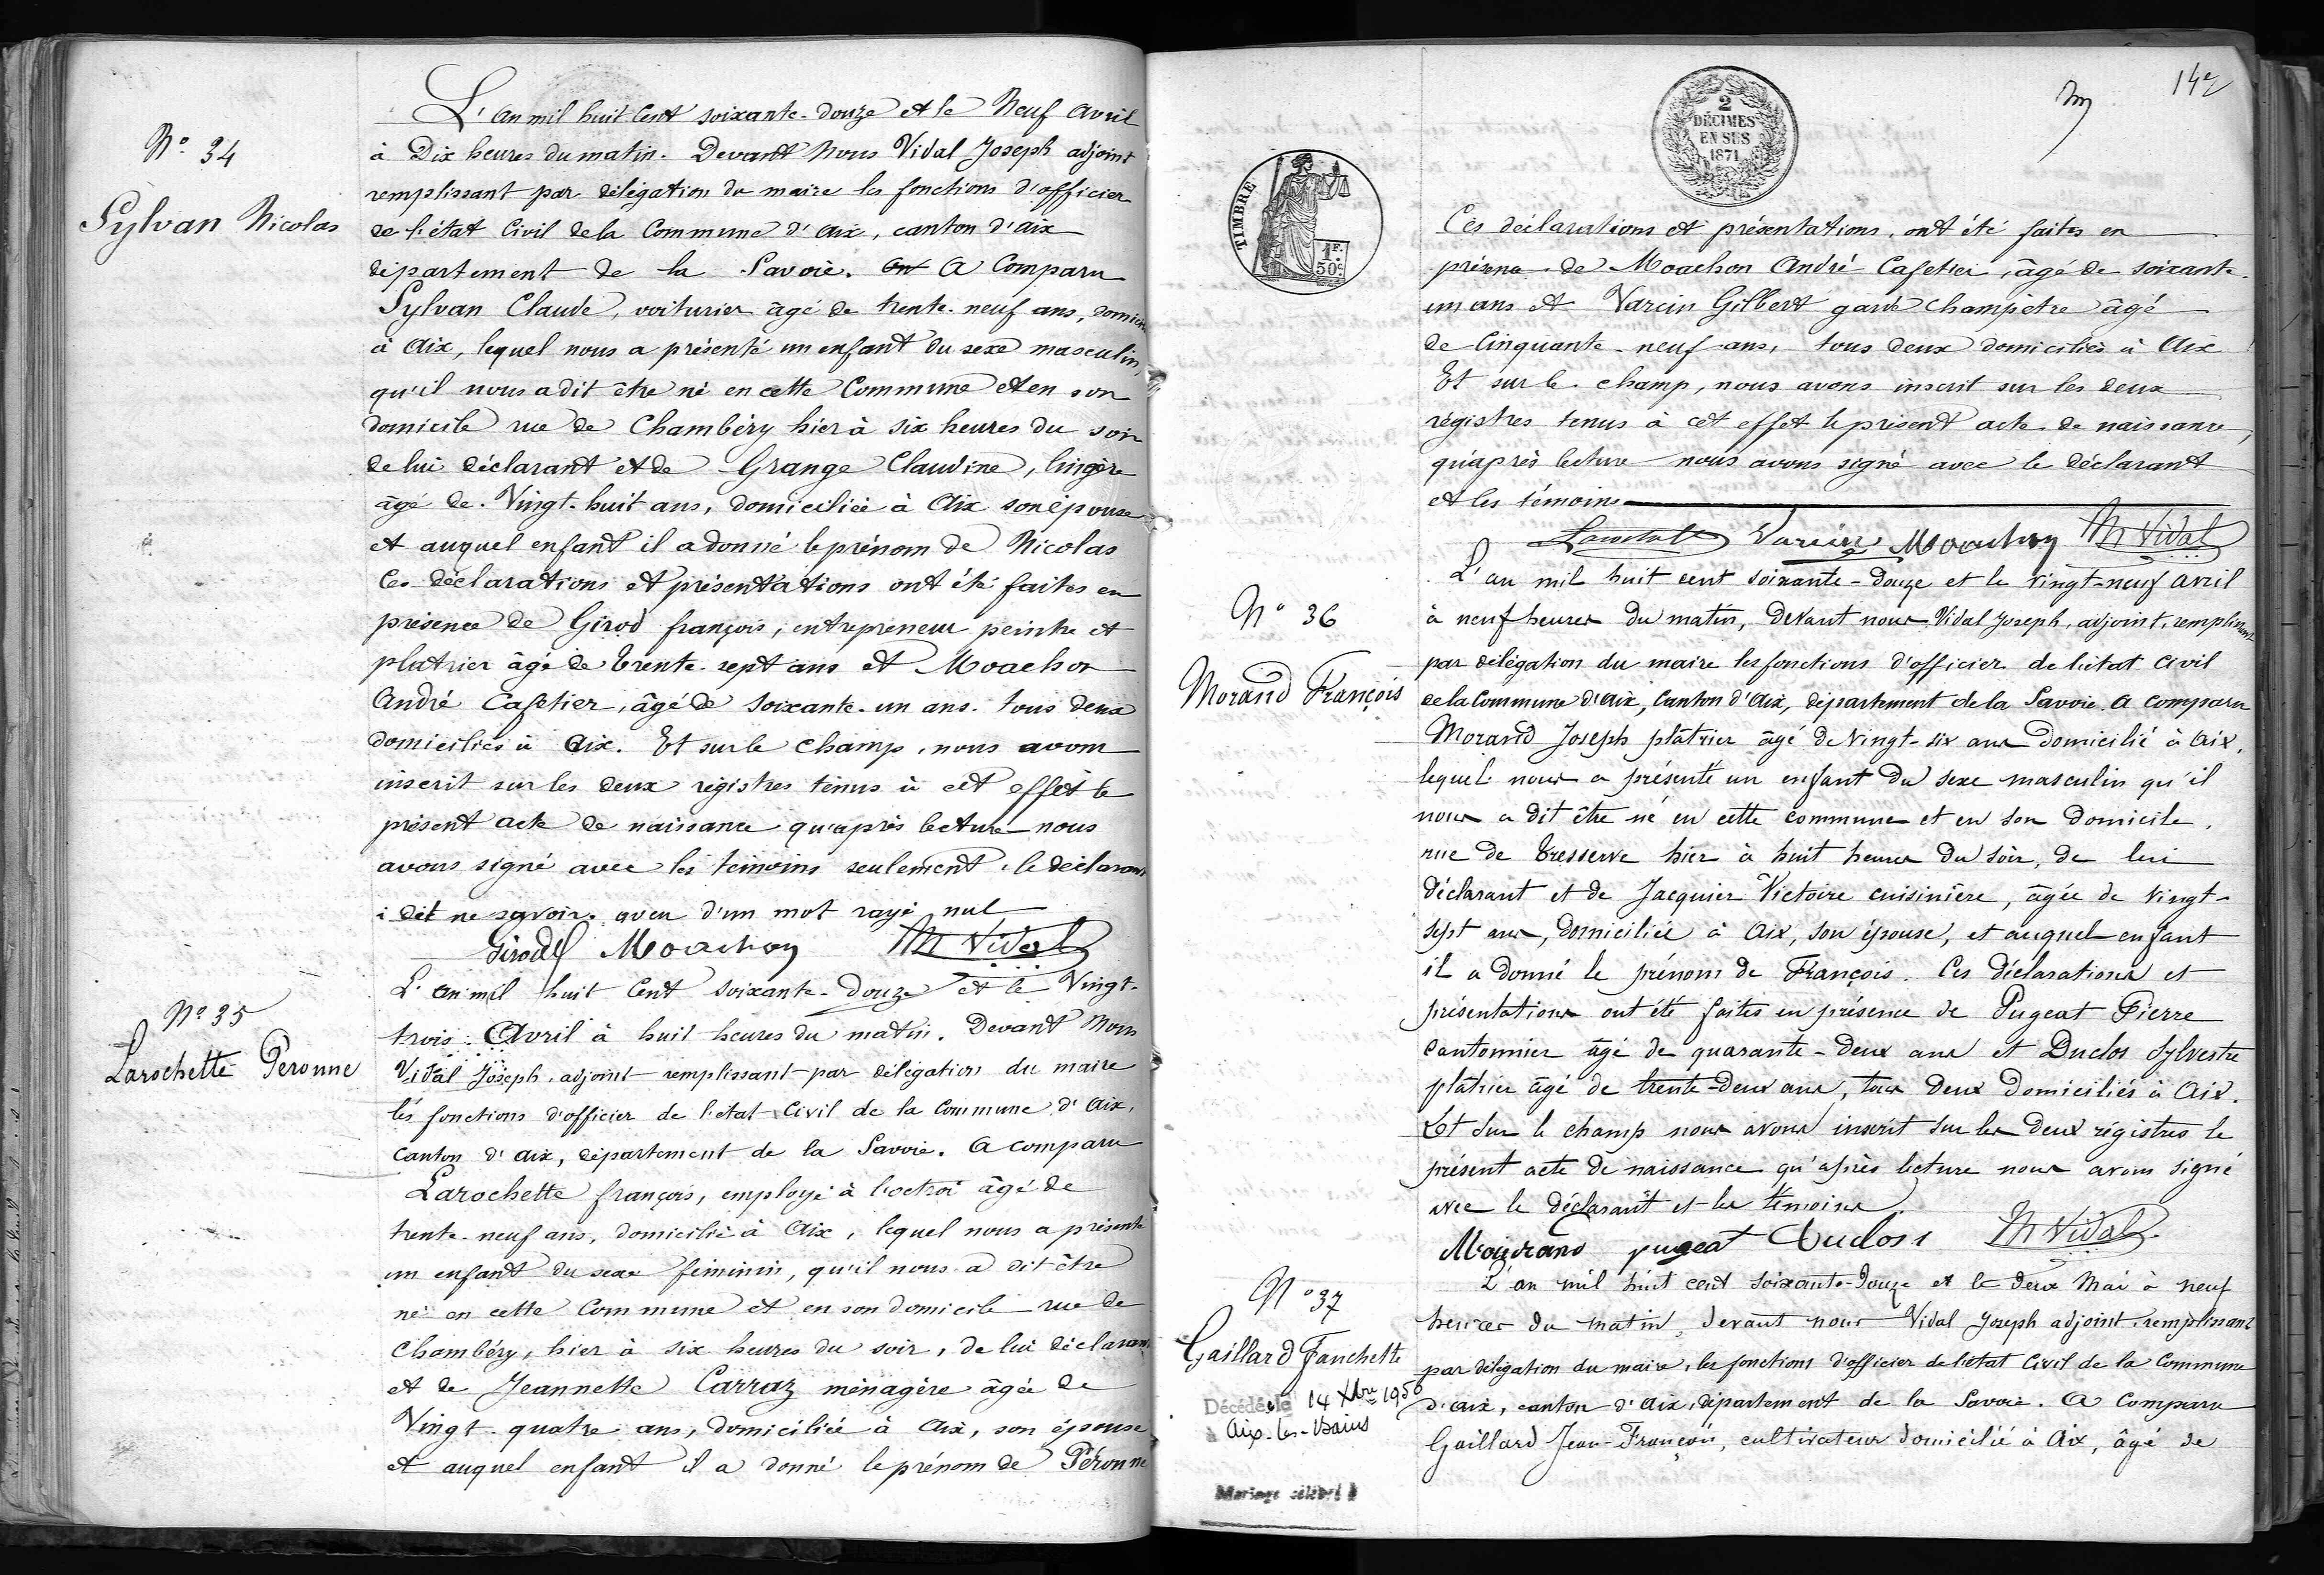 N° 34
Sylvan Nicolas
L'an mil huit Cent soixante-douze et le Neuf Avril
à Dix heures du matin. Devant Nous Vidal Joseph adjoint
remplissant par délégation du maire les fonctions d'officier
de l'état Civil de la Commune d'aix, canton d'aix
département de la Savoie. ont A Comparu
Sylvan Claude, voiturier âgé de trente-neuf ans, domici
à Aix, lequel nous a présenté un enfant du sexe masculin,
qu'il nous a dit être né en cette Commune et en son
domicile rue de Chambéry hier à six heures du soir
de lui déclarant et de Grange Claudine, lingère
âgé de Vingt-huit ans, domiciliée à Aix son épouse
et auquel enfant il a donné le prénom de Nicolas
Ces déclarations et présentations ont été faites en
présence de Girod françois, entrepreneur peintre et
platrier âgé de trente-sept ans et Moachon
André Cafetier, âgé de soixante-un ans tous deux
domiciliés à Aix. Et sur le champ, nous avons
inscrit sur les deux régistres tenus à cet effet le
présent acte de naissance qu'après lecture nous
avons signé avec les témoins seulement, le déclarant
dit ne savoir. aveu d'un mot rayé nul
Girod Moachon M Vidal
N° 35
Larochette Péronne
L'an mil huit Cent soixante-douze et le Vingt-
trois Avril à huit heures du matin. Devant Nous
Vidal Joseph, adjoint remplissant par délégation du maire
les fonctions d'officier de l'état Civil de la Commune d'Aix,
canton d'aix, département de la Savoie. A comparu
Larochette françois, employé à l'octroi âgé de
trente-neuf ans, domicilié à Aix, lequel nous a présenté
un enfant du sexe féminin, qu'il nous a dit être
né en cette Commune et en son domicile rue de
Chambéry, hier à six heures du soir, de lui déclarant
et de Jeannette Carraz ménagère âgée de
Vingt-quatre ans, domiciliée à Aix, son épouse
et auquel enfant il a donné le prénom de Péronne
14e
2
DÉCIMES
EN SUS
1871
TIMBRE
1F.
50c
Ces déclarations et présentations, ont été faites en
présence de Moachon André Cafetier, âgé de soixante-
un ans et Varcin Gilbert garde Champêtre âgé
de Cinquante-neuf ans, tous deux domiciliés à Aix
Et sur le champ, nous avons inscrit sur les deux
régistres tenus à cet effet le présent acte de naissance,
qu'après lecture nous avons signé avec le déclarant
et les témoins
Larochette Varcin Moachon M Vidal
N° 36
Morand François
L'an mil huit cent soixante-douze et le vingt-neuf avril
à neuf heures du matin, devant nous Vidal Joseph, adjoint, remplissant
par délégation du maire les fonctions d'officier de l'état civil
de la Commune d'Aix, Canton d'Aix, département de la Savoie. A comparu
Morand Joseph plâtrier âgé de vingt-six ans domicilié à Aix,
lequel nous a présenté un enfant du sexe masculin qu'il
nous a dit être né en cette commune et en son domicile,
rue de Tresserve hier à huit heures du soir, de lui
déclarant et de Jacquier Victoire cuisinière, âgée de vingt-
sept ans, domiciliée à Aix, son épouse, et auquel enfant
il a donné le prénom de François. Ces déclarations et
présentations ont été faites en présence de Pugeat Pierre
cantonnier âgé de quarante-deux ans et Duclos Sylvestre
plâtrier âgé de trente-deux ans, tous deux domiciliés à Aix.
Et sur le champ nous avons inscrit sur les deux régistres le
présent acte de naissance qu'après lecture nous avons signé
avec le déclarant et les témoins.
Morand pugeat Duclos M Vidal
N° 37
Gaillard Fanchette
Décédée le 14 Xbre 1950
Aix-les-Bains
Mariage célébré à
L'an mil huit cent soixante-douze et le deux Mai à neuf
heures du matin, devant nous Vidal Joseph adjoint remplissant
par délégation du maire, les fonctions d'officier de l'état Civil de la Commune
d'aix, canton d'aix, département de la Savoie. A Comparu
Gaillard Jean-François, cultivateur domicilié à Aix, âgé de